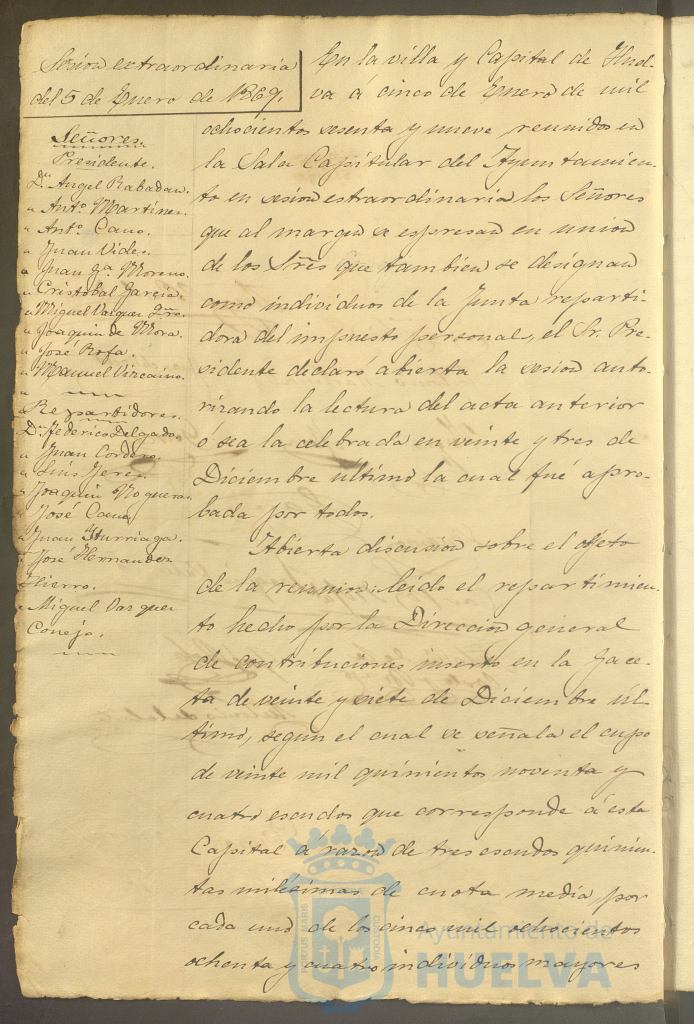 Sesion extraordinaria
del 5 de Enero de 1869.
Señores.
Presidente.
Dn. Angel Rabadan.
" Antº. Martinez.
" Antº. Cano.
" Juan Vides.
" Juan Gª. Moreno.
" Cristobal Garcia.
" Miguel Vazquez
" Joaquin de Mora.
" José Rofa.
" Manuel Vizcaino.
Repartidores.
Dn. Federico Delgado.
" Juan Cordero.
" Luis Jerez.
" Joaquin Noguera.
" José Cano
" Juan Yturriaga.
" José Hernandez
Hierro.
" Miguel Vazquez
Conejo.
En la villa y Capital de Huel-
va á cinco de Enero de mil
ochocientos sesenta y nueve reunidos en
la Sala Capitular del Ayuntamien-
to en sesion extraordinaria los Señores
que al margen se espresan en union
de los Sres que tambien se designan
como individuos de la Junta reparti-
dora del impuesto personal, el Sr. Pre-
sidente declaró abierta la sesion auto-
rizando la lectura del acta anterior
ó sea la celebrada en veinte y tres de
Diciembre último la cual fué apro-
bada por todos.
Abierta discusion sobre el objeto
de la reunion, leido el repartimien-
to hecho por la Direccion general
de contribuciones inserto en la Gace-
ta de veinte y siete de Diciembre úl-
timo, segun el cual se señala el cupo
de veinte mil quinientos noventa y
cuatro escudos que corresponde á esta
Capital á razon de tres escudos quinien-
tas milésimas de cuota media por
cada uno de los cinco mil ochocientos
ochenta y cuatro individuos mayores
Ayuntamiento de
HUELVA